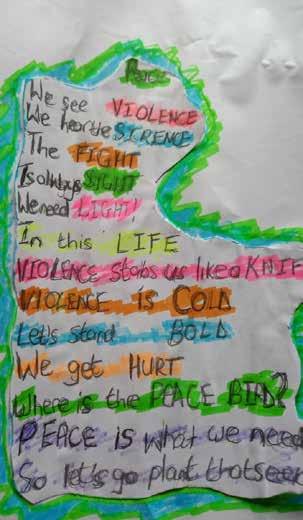 Peace
We see VIOLENCE
We hear the SIRENCE
The FIGHT
Is always SIGHT
We need LIGHT!
In this LIFE
VIOLENCE Stabs us like a KNIFE
VIOLENCE is COLD
Let's stand BOLD
We get HURT
Where is the PEACE BIRD?
PEACE is what we need
So let's go plant that seed